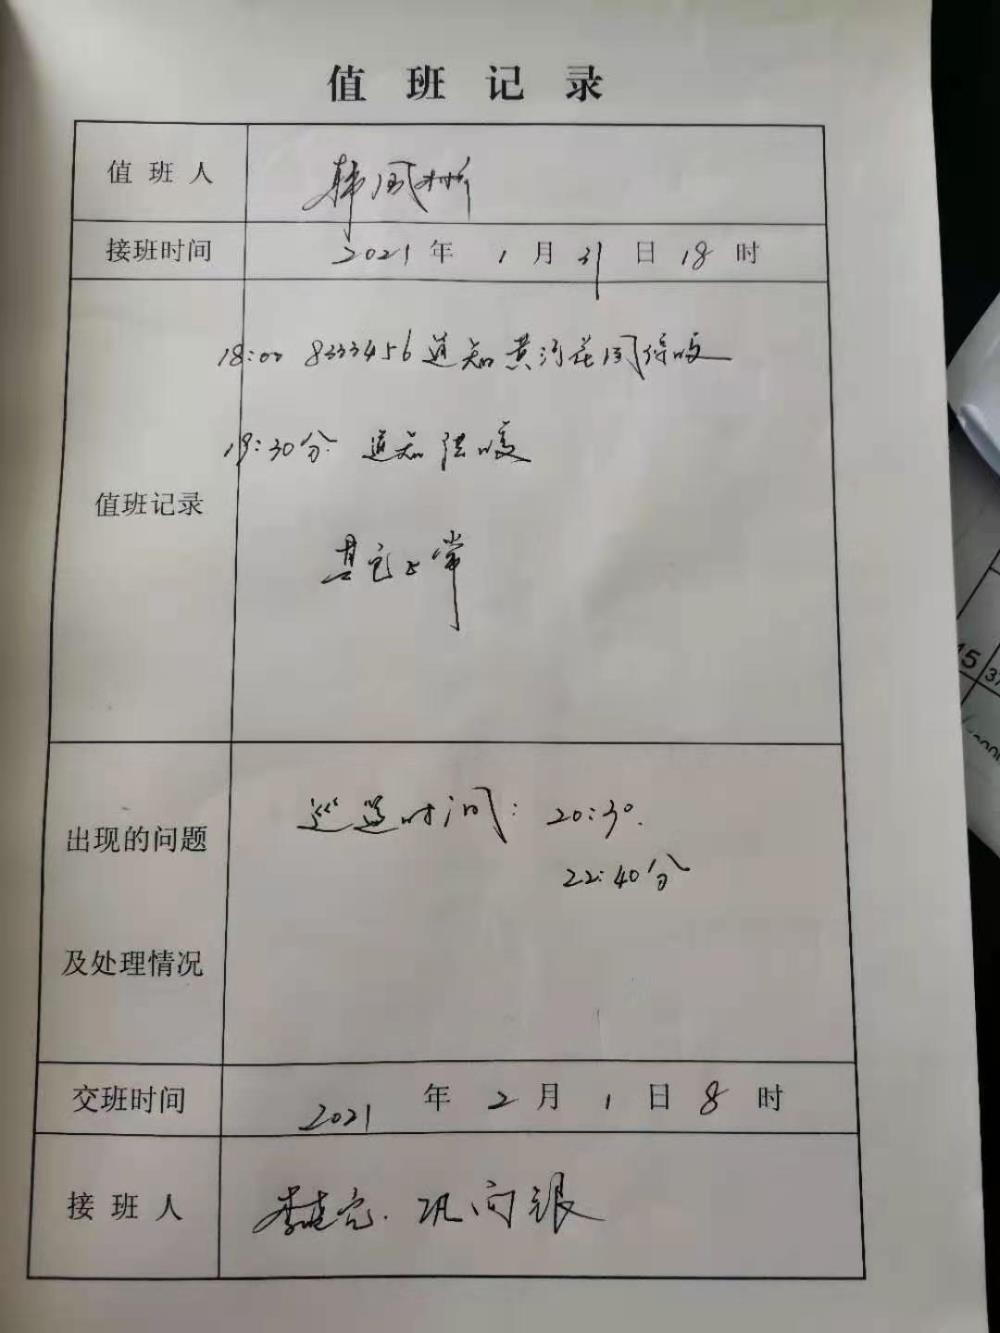 值班记录
值班人 韩风彬
接班时间 2021年1月31日18时
18:00 8333456通知黄河花园停暖
19:30分 通知供暖
值班记录
其它正常
巡逻时间: 20:30.
22:40分
出现的问题
及处理情况
交班时间 2021年2月1日8时
接班人 巩向银
15